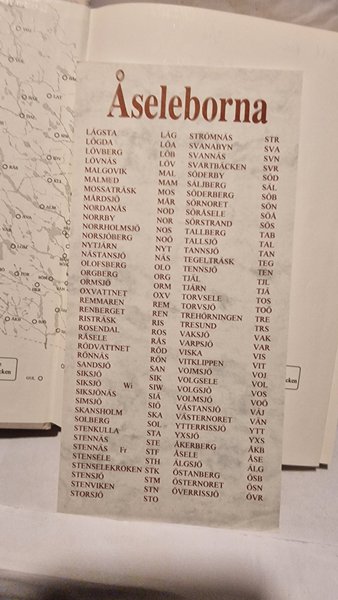 Åseleborna
LÅGSTA LÅG
LÖGDA LÖA
LÖVBERG LÖB
LÖVNÄS LÖV
MALGOVIK MAL
MALMED MAM
MOSSATRÄSK MOS
MÅRDSJÖ MÅR
NORDANÅS NOD
NORRBY NOR
NORRHOLMSJÖ NOS
NORSJÖBERG NOÖ
NYTJÄRN NYT
NÄSTANSJÖ NÄS
OLOFSBERG OLO
ORGBERG ORG
ORMSJÖ ORM
OXVATTNET OXV
REMMAREN REM
RENBERGET REN
RISTRÄSK RIS
ROSENDAL ROS
RÅSELE RÅS
RÖDVATTNET RÖD
RÖNNÄS RÖN
SANDSJÖ SAN
SIKSJÖ SIK
SIKSJÖ Wi SIW
SIKSJÖNÄS SIÄ
SIMSJÖ SIÖ
SKANSHOLM SKA
SOLBERG SOL
STENKULLA STA
STENNÄS STE
STENNÄS Fr STF
STENSELE STH
STENSELEKROKEN STK
STENSJÖ STM
STENVIKEN STN
STORSJÖ STO
STRÖMNÄS STR
SVANABYN SVA
SVANNÄS SVN
SVARTBÄCKEN SVR
SÖDERBY SÖD
SÄLJBERG SÄL
SÖDERBERG SÖB
SÖRNORET SÖN
SÖRÅSELE SÖÅ
SÖRSTRAND SÖS
TALLBERG TAB
TALLSJÖ TAL
TANNSJÖ TAN
TEGELTRÄSK TEG
TENNSJÖ TEN
TJÄL TJL
TJÄRN TJÄ
TORVSELE TOS
TORVSJÖ TOÖ
TREHÖRNINGEN TRE
TRESUND TRS
VAKSJÖ VAK
VARPSJÖ VAR
VISKA VIS
VITKLIPPEN VIT
VOJMSJÖ VOJ
VOLGSELE VOL
VOLGSJÖ VOS
VOLMSJÖ VOÖ
VÄSTANSJÖ VÄJ
VÄSTERNORET VÄN
YTTERRISSJÖ YTT
YXSJÖ YXS
ÅKERBERG ÅKB
ÅSELE ÅSE
ÄLGSJÖ ÄLG
ÖSTANBERG ÖSB
ÖSTERNORET ÖSN
ÖVERRISSJÖ ÖVR